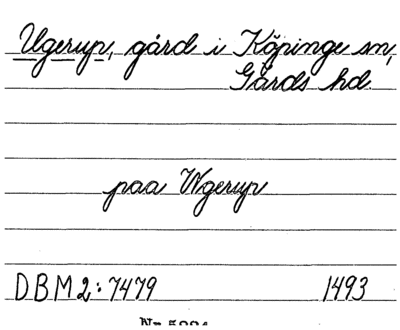 Ugerup, gård i Köpinge sn,
Gärds hd.
paa Wgerup
DBM 2: 7479 1493